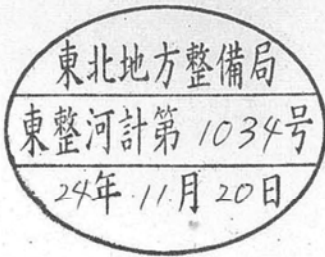 東北地方整備局
東整河計第1034号
24年11月20日